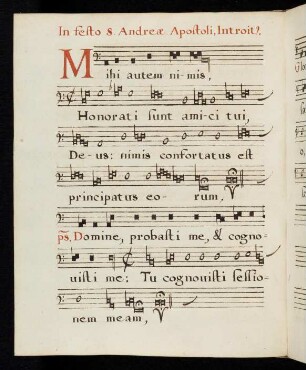 In festo S. Andreæ Apostoli, Introit⁹.
Mihi autem nimis,
Honorati sunt ami-ci tui,
De-us: nimis confortatus est
principatus eo-rum,
ps, Domine, probasti me, & cogno-
visti me: Tu cognovisti sessio-
nem meam,